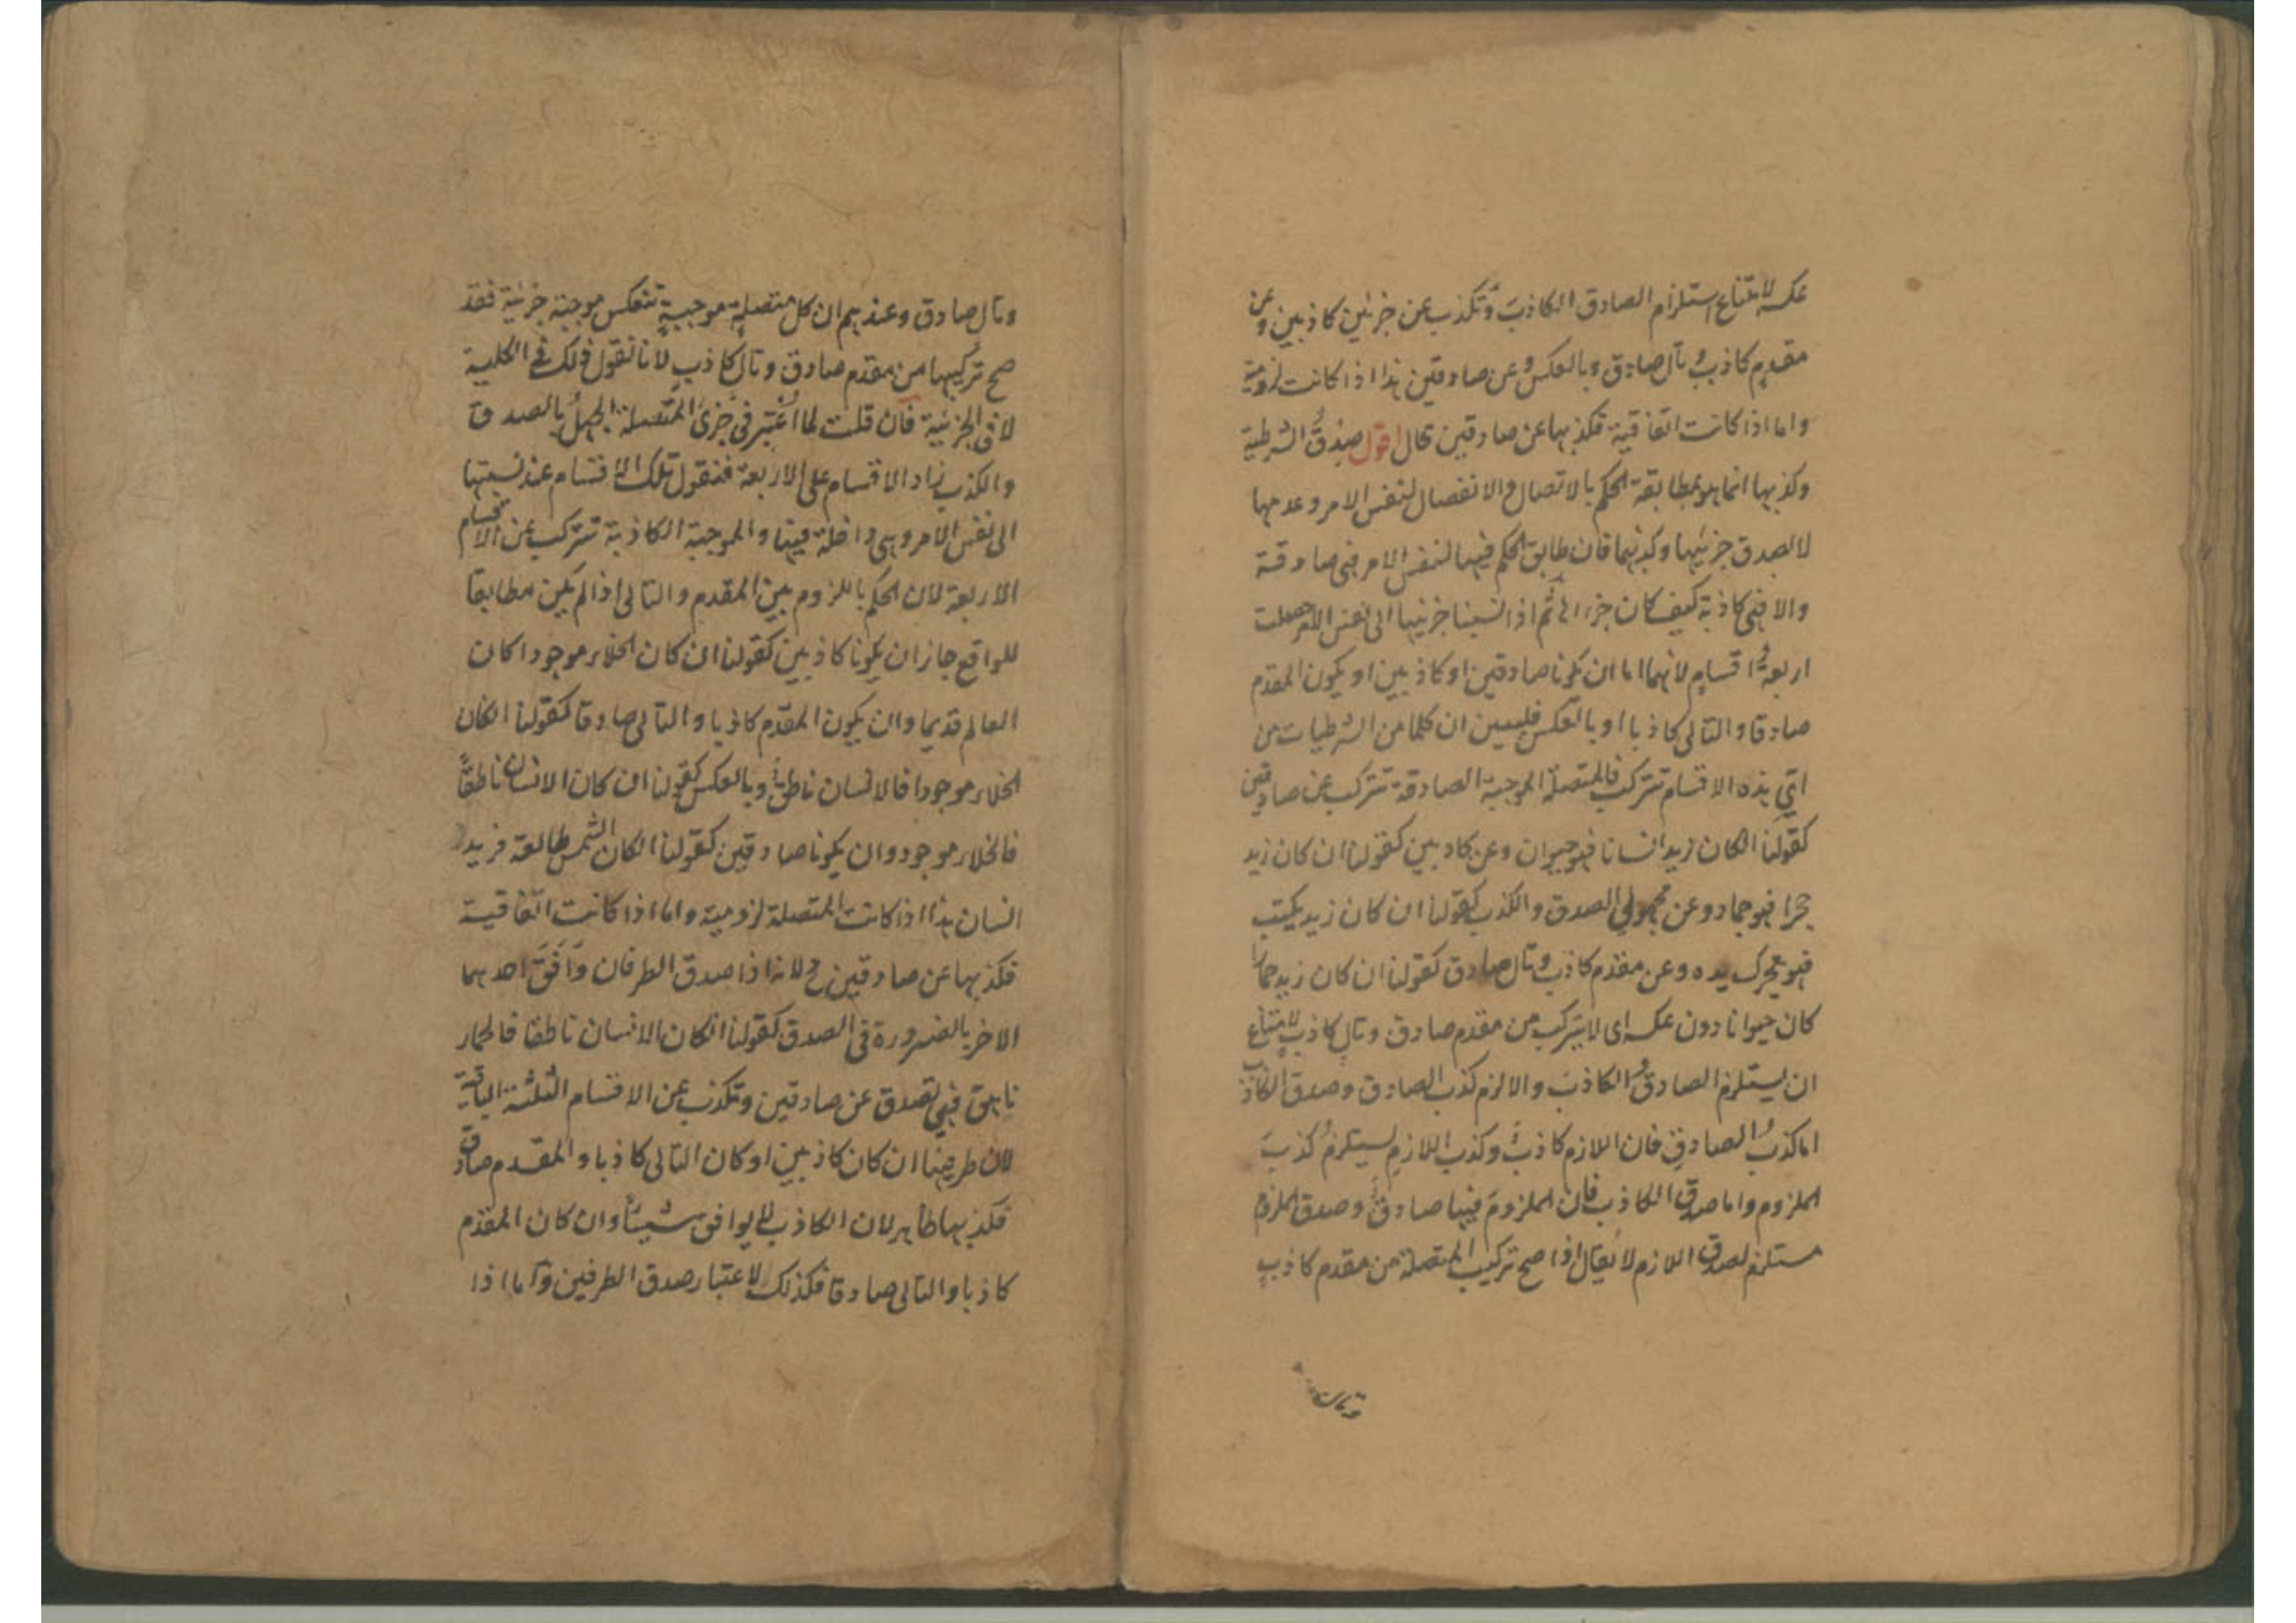 عكسه لامتناع استلزام الصادق الكاذبَ وتكذب عن جزئين كاذبين وعن
مقدمٍ كاذبٍ وتالٍ صادق وبالعكس وعن صادقين هذا اذا كانت لزومية
واما اذا كانت اتفاقية فكذبها عن صادقين محال اقول صدقُ الشرطية
وكذبها انما هو بمطابقة الحكم بالاتصال والانفصال لنفس الامر وعدمها
لا بصدق جزئيها وكذبهما فان طابق الحكم فيها لنفس الامر فهى صادقة
والا فهى كاذبة كيف كان جزءاها ثم اذا نسبنا جزئيها الى نفس الامر حصلت
اربعةُ اقسامٍ لانهما اما ان يكونا صادقين او كاذبين او يكون المقدم
صادقا والتالى كاذبا او بالعكس فليبين ان كلا من الشرطيات من
اىّ هذه الاقسام تتركب فالمتصلة الموجبة الصادقة تتركب عن صادقين
كقولنا ان كان زيد انسانا فهو حيوان وعن كاذبين كقولنا ان كان زيد
حجرا فهو جماد وعن مجهولي الصدق والكذب كقولنا ان كان زيد يكتب
فهو يحرك يده وعن مقدم كاذب وتال صادق كقولنا ان كان زيد حمارا
كان حيوانا دون عكسه اى لا يتركب من مقدم صادق وتالٍ كاذبٍ لامتناع
ان يستلزم الصادقُ الكاذبَ والا لزم كذب الصادق وصدق الكاذب
اما كذبُ الصادقِ فان اللازم كاذبٌ وكذب اللازمِ يستلزمُ كذبَ
الملزوم واما صدق الكاذب فان الملزومَ فيها صادقٌ وصدق الملزوم
مستلزم لصدق اللازم لا يُقال اذا صح تركيب المتصلة من مقدم كاذبٍ
وتالٍ صادق وعندهم ان كل متصلةٍ موجبيةٍ تنعكس موجبة جزئية فقد
صح تركيبها من مقدم صادق وتالٍ كاذبٍ لأنا نقول ذلك فى الكلية
لا فى الجزئية فان قلت لما اعُتبر فى جزئى المتصلة الجهلُ بالصدق
والكذب زاد الاقسام على الاربعة فنقول تلك الاقسام عند نسبتها
الى نفس الامر وهى داخلة فيها والموجبة الكاذبة تتركب عن الاقسام
الاربعة لان الحكم باللزوم بين المقدم والتالى اذا لم يكن مطابقا
للواقع جاز ان يكونا كاذبين كقولنا ان كان الخلاء موجودا كان
العالم قديما وان يكون المقدم كاذبا والتالى صادقا كقولنا ان كان
الخلاء موجودا فالانسان ناطق وبالعكس كقولنا ان كان الانسان ناطقاً
فالخلاء موجود وان يكونا صادقين كقولنا ان كان الشمس طالعة فزيد
انسان هذا اذا كانت المتصلة لزومية واما اذا كانت اتفاقية
فكذبها عن صادقين مح لانه اذا صدق الطرفان وَافَقَ احدهما
الاخر بالضرورة فى الصدق كقولنا ان كان الانسان ناطقا فالحمار
ناهق فهى تصدق عن صادقين وتكذب عن الاقسام الثلثة الباقية
لان طرفيها ان كان كاذبين او كان التالى كاذبا والمقدم صادقا
فكذبها ظاهر لان الكاذب لا يوافق شيئاً وان كان المقدم
كاذبا والتالى صادقا فكذلك لاعتبار صدق الطرفين وآما اذا
وتال